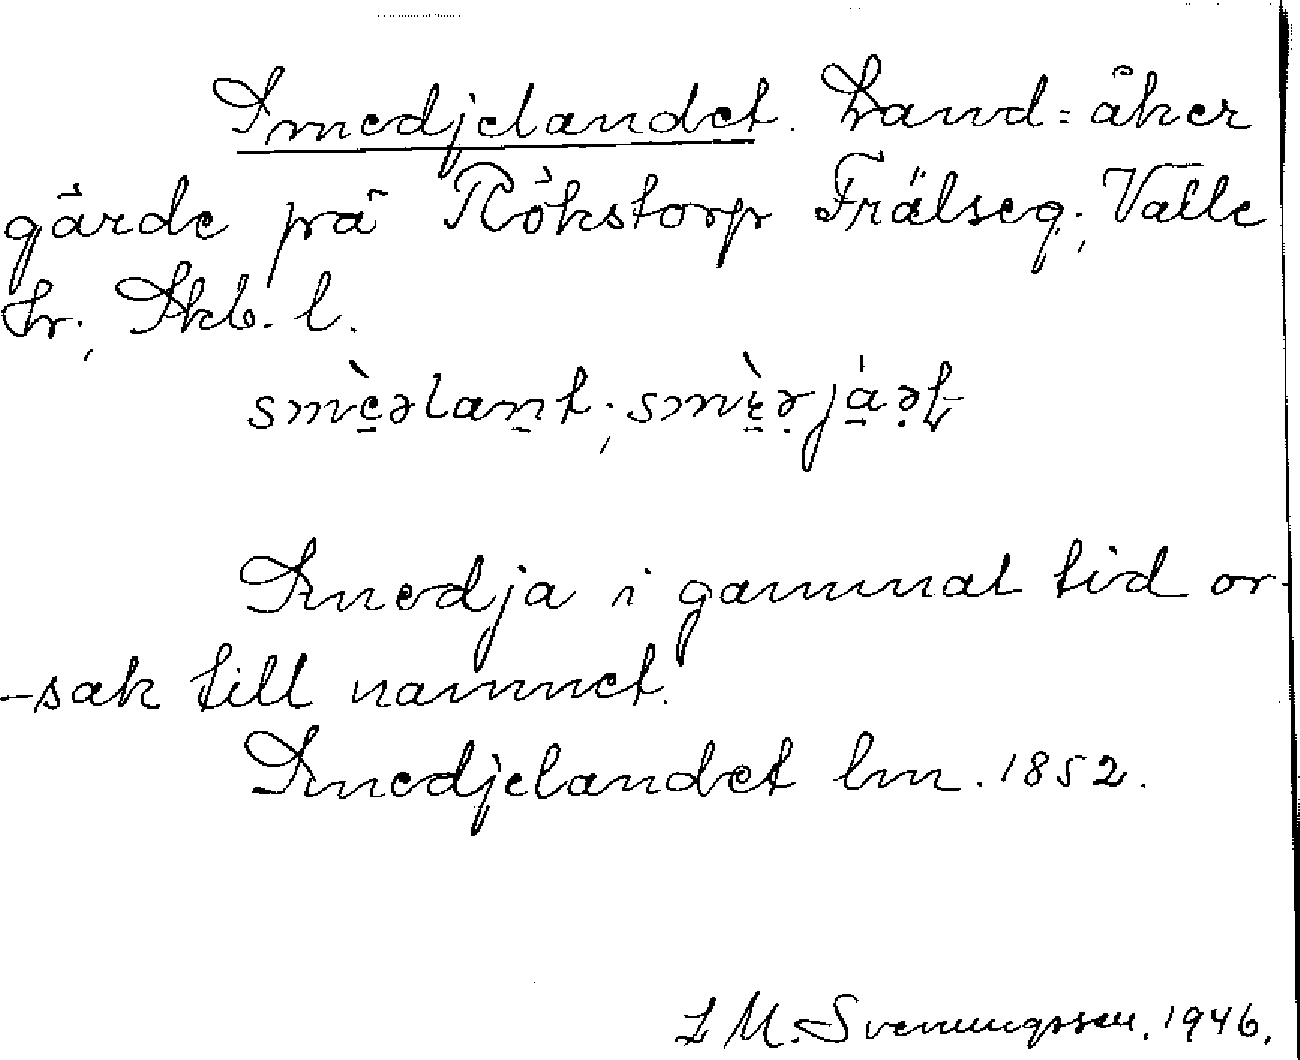 Smedjelandet. Land = åker
gärde på Rökstorp Frälseg., Valle
hr., Skb. l.
smèəlant; smɛ̀ərjáət
Smedja i gammal tid or-
-sak till namnet.
Smedjelandet lm. 1852.
L M. Svenungsson. 1946.